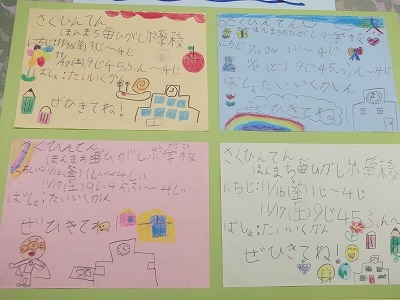 さくひんてん
ほんまち ひがし小学校
にちじ 11/16(金)1じ〜4じ
11/17(土)9じ45ふん〜4じ
ばしょ:たいいくかん
ぜひきてね!
さくひんてん
ほんまちひがし小学校
にちじ
1じ〜4じ
9じ45ふん〜4じ
ばしょ:たいいくかん
ぜひきてね!
さくひんてん
ほんまち ひがし小学校
11/16(金)1じ〜4じ
11/17(土)9じ45ふん〜4じ
ばしょ:たいいくかん
ぜひきてね!
さくひんてん
ほんまち ひがし小学校
にちじ:11/16(金)1じ〜4じ
11/17(土)9じ45ふん〜
ばしょ:たいいくかん
ぜひきてね!